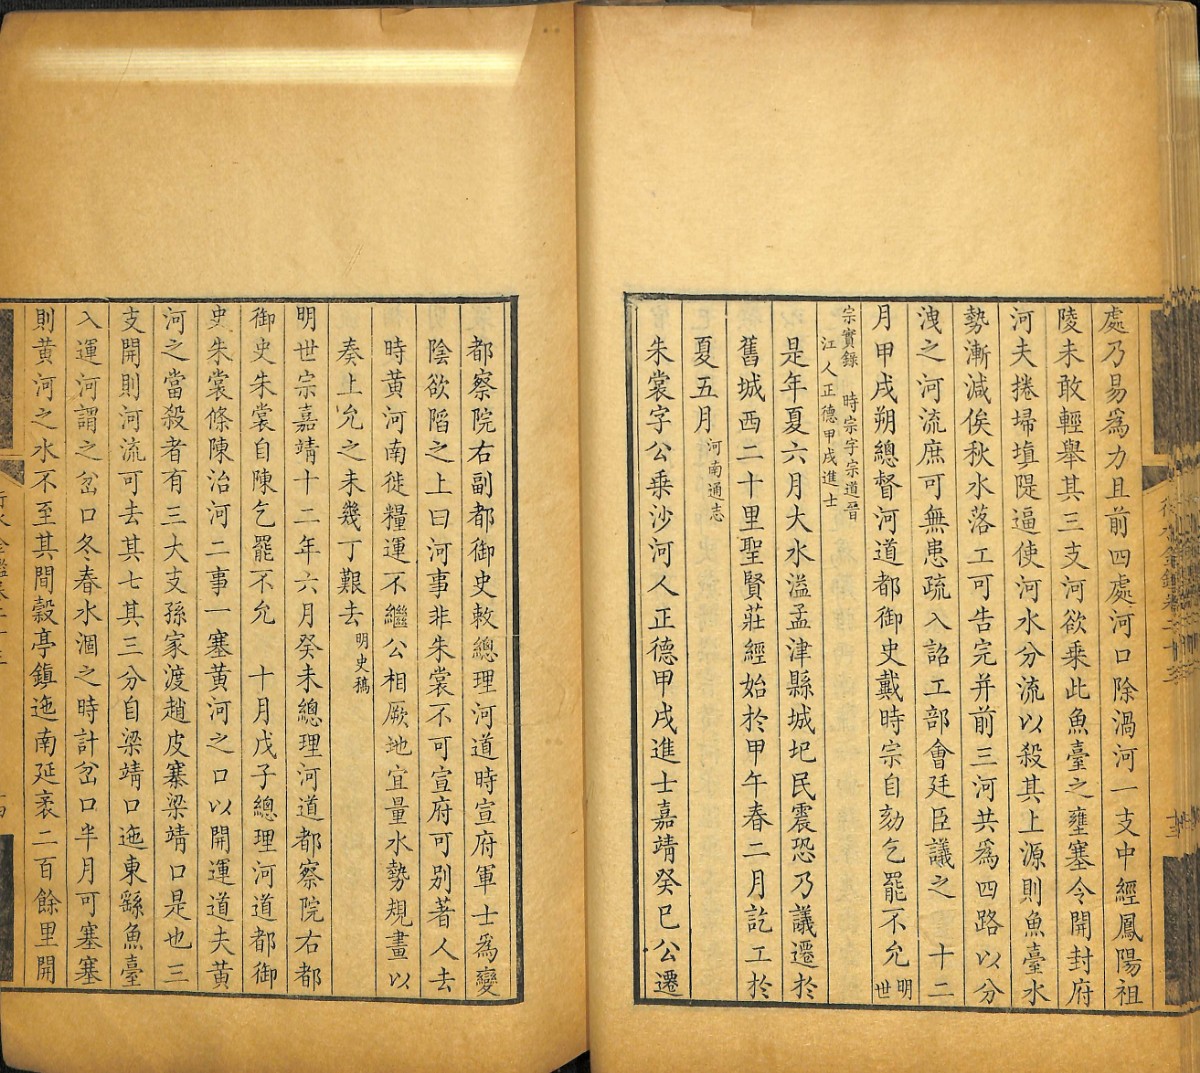 處乃易爲力且前四處河口除渦河一支中經鳳陽祖
陵未敢輕舉其三支河欲乘此魚臺之壅塞令開封府
河夫捲埽填隄逼使河水分流以殺其上源則魚臺水
勢漸減俟秋水落工可告完并前三河共爲四路以分
洩之河流庶可無患疏入詔工部會廷臣議之 十二
月甲戌朔總督河道都御史戴時宗自劾乞罷不允明世
宗實錄 時宗字宗道晉
江人正德甲戌進士
是年夏六月大水溢孟津縣城圮民震恐乃議遷於
舊城西二十里聖賢莊經始於甲午春二月訖工於
夏五月河南通志
朱裳字公乘沙河人正德甲戌進士嘉靖癸巳公遷
都察院右副都御史敕總理河道時宣府軍士爲變
陰欲陷之上曰河事非朱裳不可宣府可別著人去
時黃河南徙糧運不繼公相厥地宜量水勢規畫以
奏上允之未幾丁艱去明史稿
明世宗嘉靖十二年六月癸未總理河道都察院右都
御史朱裳自陳乞罷不允 十月戊子總理河道都御
史朱裳條陳治河二事一塞黃河之口以開運道夫黃
河之當殺者有三大支孫家渡趙皮寨梁靖口是也三
支開則河流可去其七其三分自梁靖口迤東繇魚臺
入運河謂之岔口冬春水涸之時計岔口半月可塞塞
則黃河之水不至其間穀亭鎮迤南延袤二百餘里開